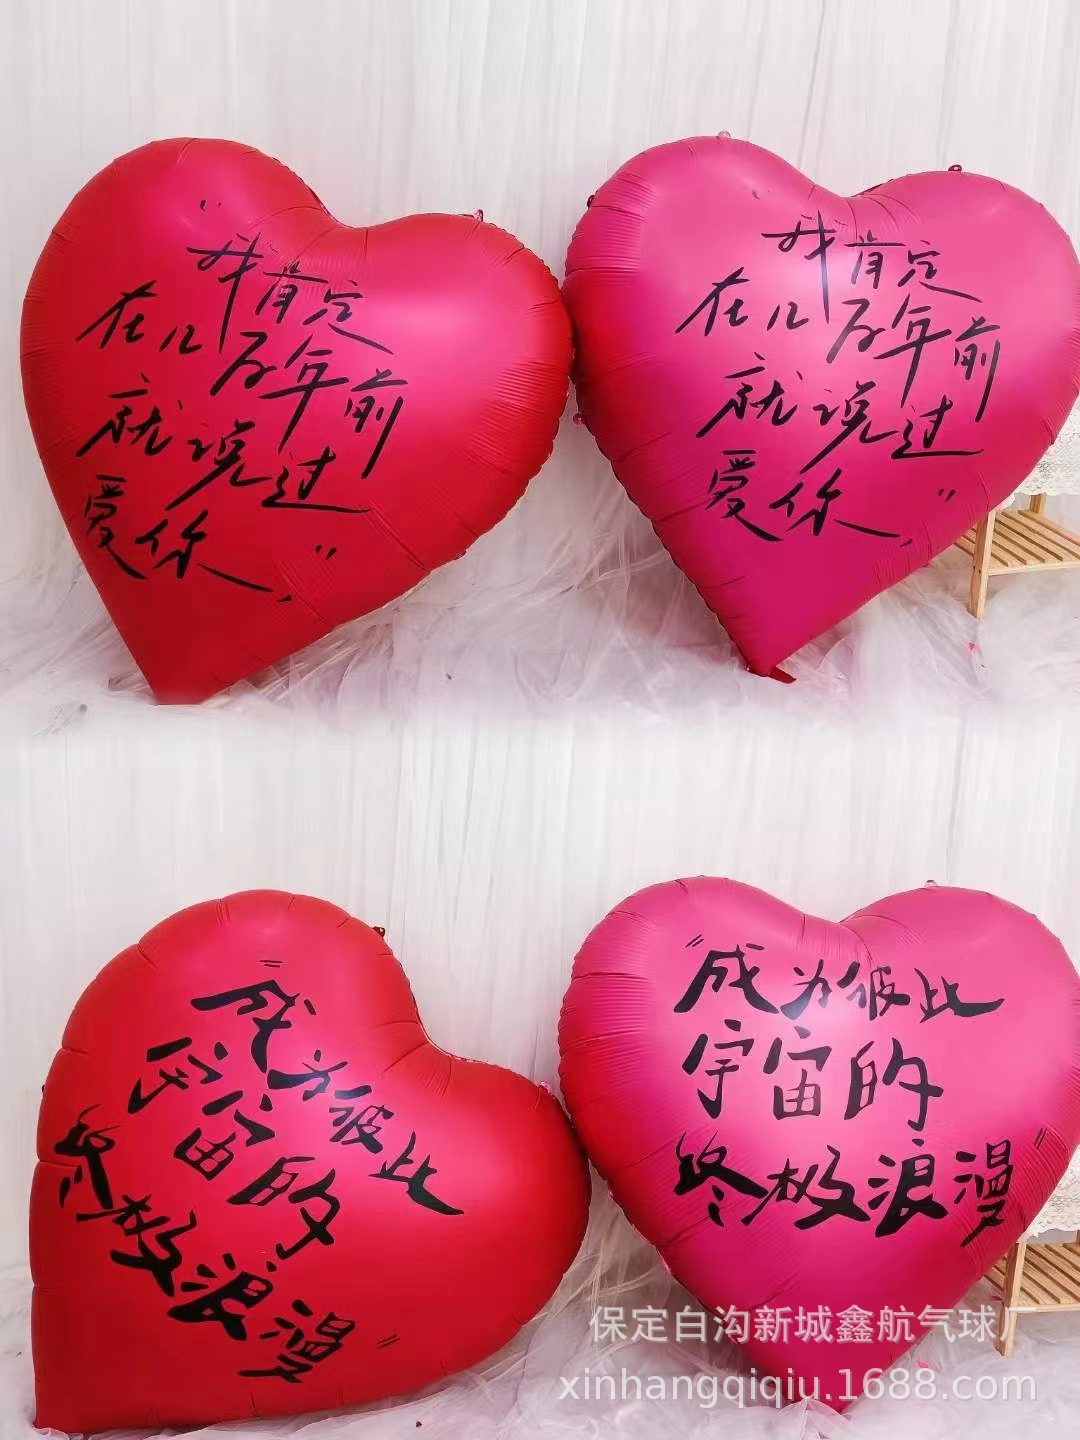 "我肯定
在几万年前
就说过
爱你"
"我肯定
在几万年前
就说过
爱你"
"成为彼此
宇宙的
终极浪漫"
"成为彼此
宇宙的
终极浪漫"
保定白沟新城鑫航气球厂
xinhangqiqiu.1688.com